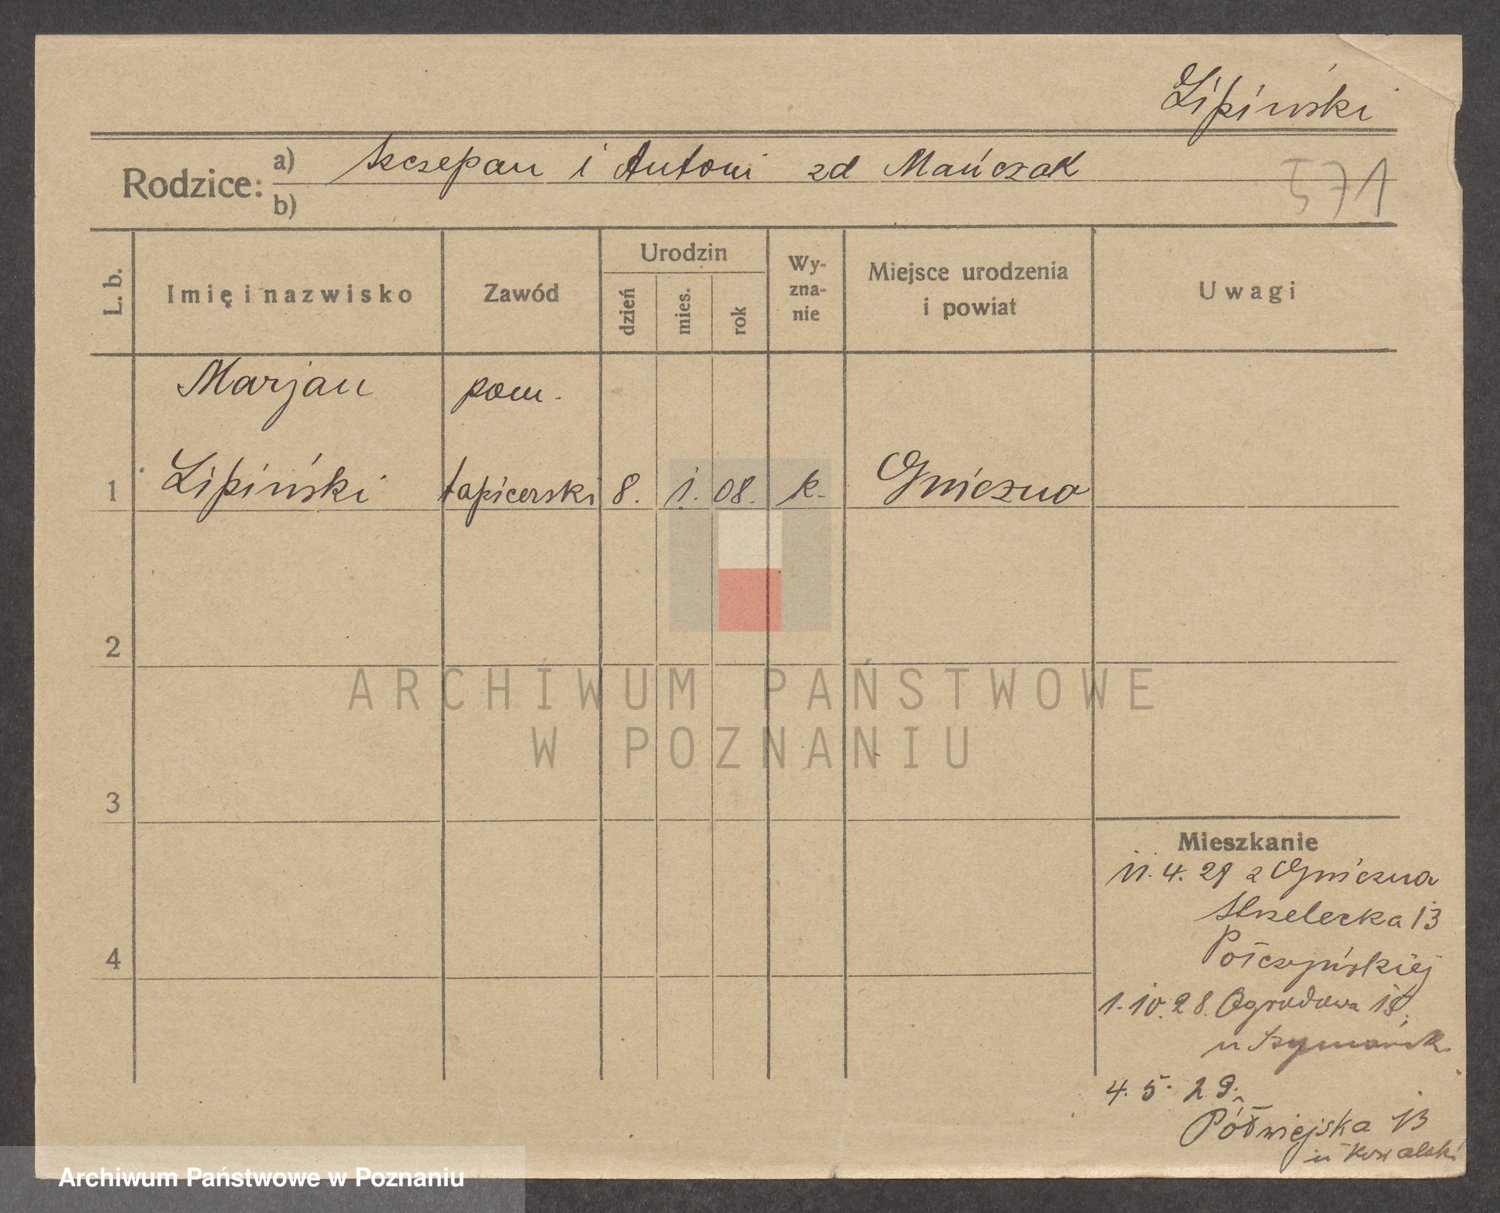 Lipiński
Rodzice: a) Szczepan i Antoni zd Mańczak
b)
571
L. b.
Imię i nazwisko
Zawód
Urodzin
dzień
mies.
rok
Wy-
zna-
nie
Miejsce urodzenia
i powiat
Uwagi
Marjan pom.
1 Lipiński tapicerski 8. 1. 08. k. Gniezno
2
ARCHIWUM PAŃSTWOWE
W POZNANIU
3
4
Mieszkanie
11. 4. 28 z Gniezna
Strzelecka 13
1. 10. 28. Ogrodowa 18.
u
4. 5. 29.
Półwiejska 13
u Kowalski
Archiwum Państwowe w Poznaniu